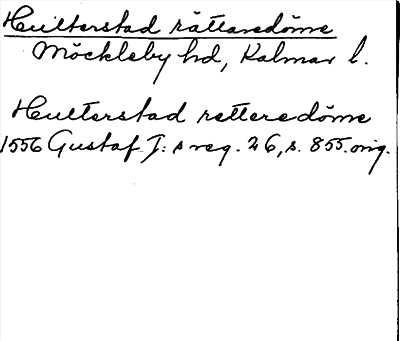 Hulterstad rättaredöme
Möckleby hd, Kalmar l.
Hulterstad retteredöme
1556 Gustaf I:s reg. 26, s. 855. orig.